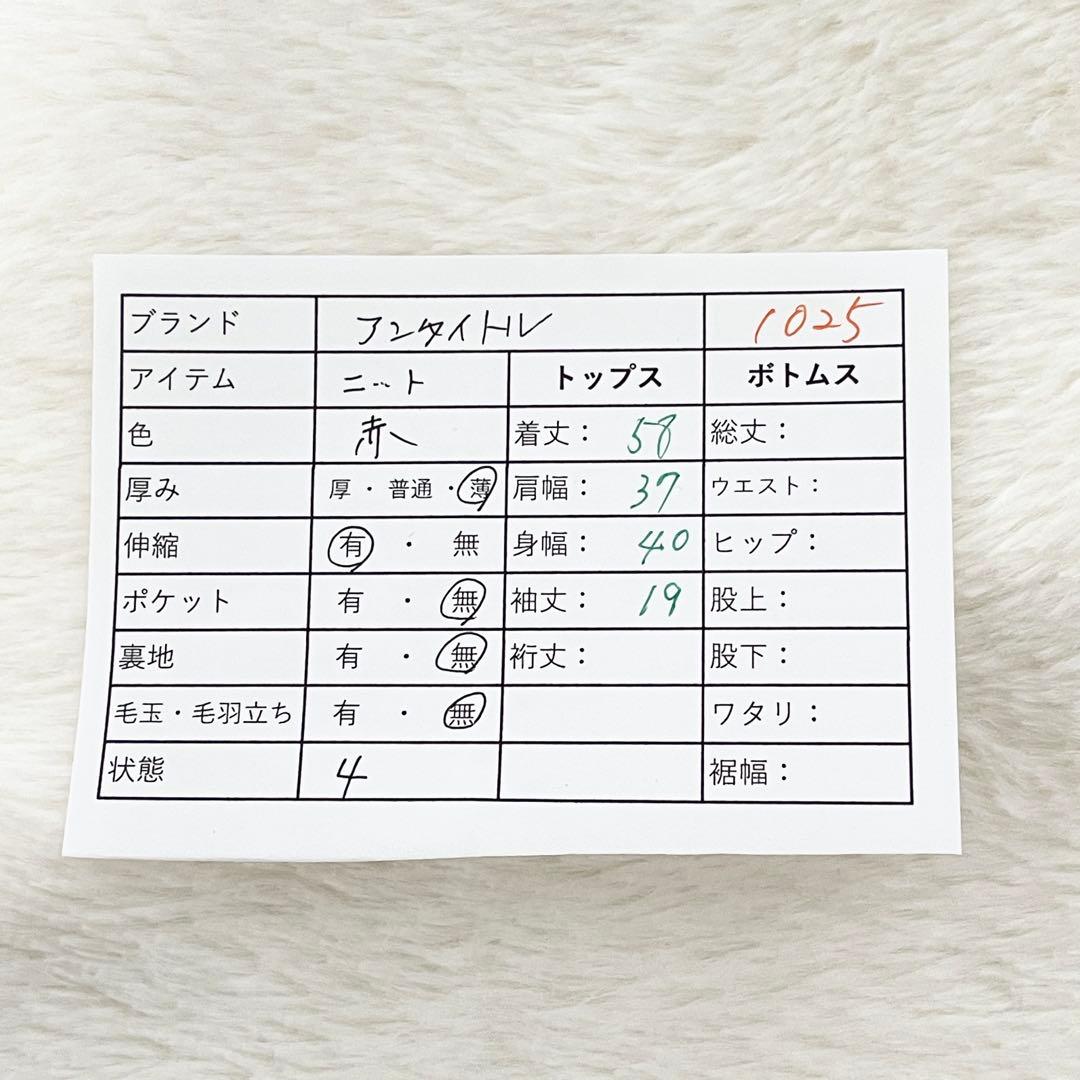 ブランド アンタイトル 1025
アイテム ニット トップス ボトムス
色 赤 着丈： 58 総丈：
厚み 厚・普通・薄 肩幅： 37 ウエスト：
伸縮 有・無 身幅： 40 ヒップ：
ポケット 有・無 袖丈： 19 股上：
裏地 有・無 裄丈： 股下：
毛玉・毛羽立ち 有・無 ワタリ：
状態 4 裾幅：